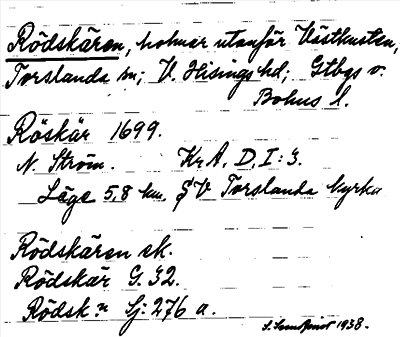 Rödskären, holmar utanför Västkusten,
Torslanda sn; V. Hisings hd; Gtbgs o.
Bohus l.
Röskär 1699.
N. Ström. Kr A. D. I: 3.
Läge 5,8 km. V Torslanda kyrka
Rödskären ek.
Rödskär G. 32.
Rödsk.n Sj. 276 a.
1938.